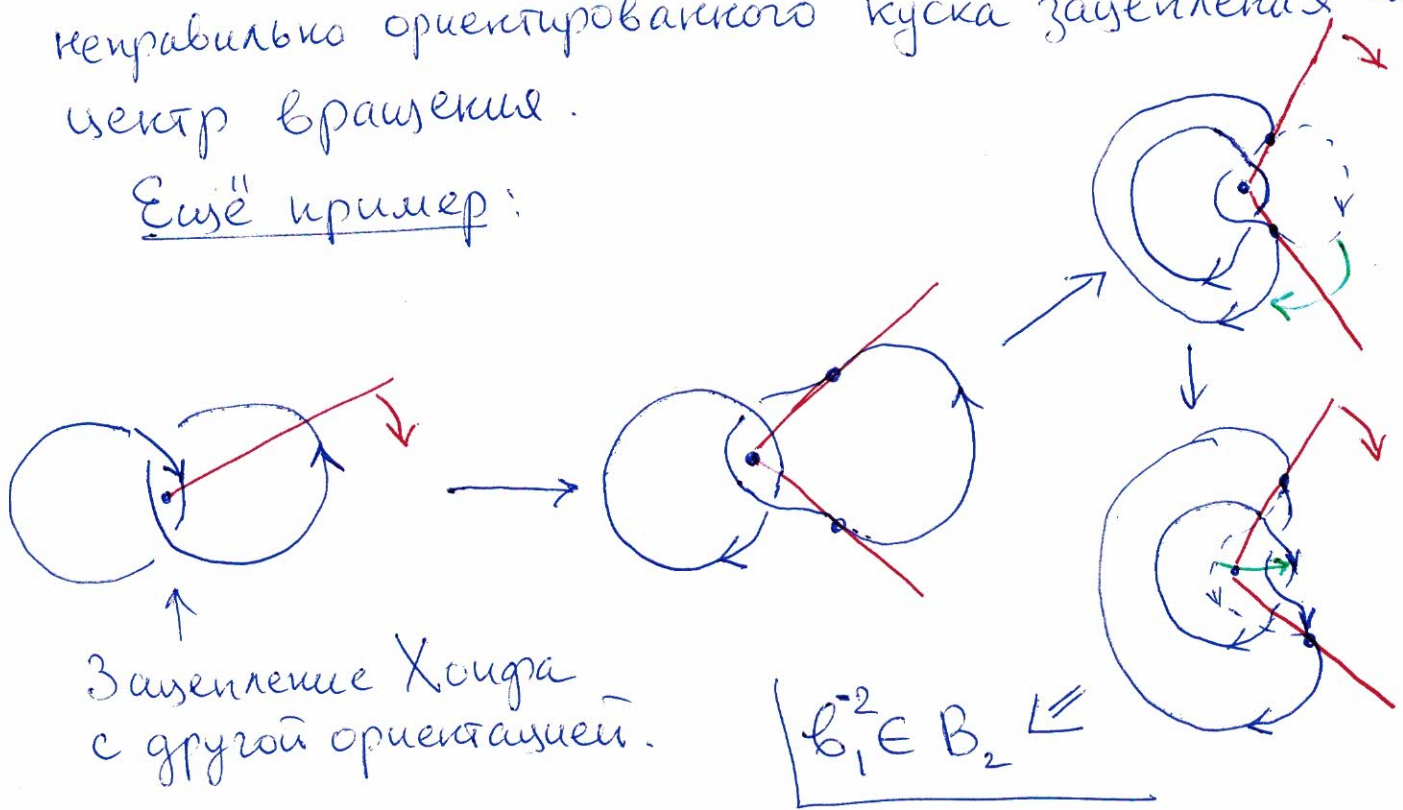 неправильно ориентированного куска зацепления
центр вращения.
Ещё пример:
Зацепление Хопфа
с другой ориентацией.
b₁⁻² ∈ B₂